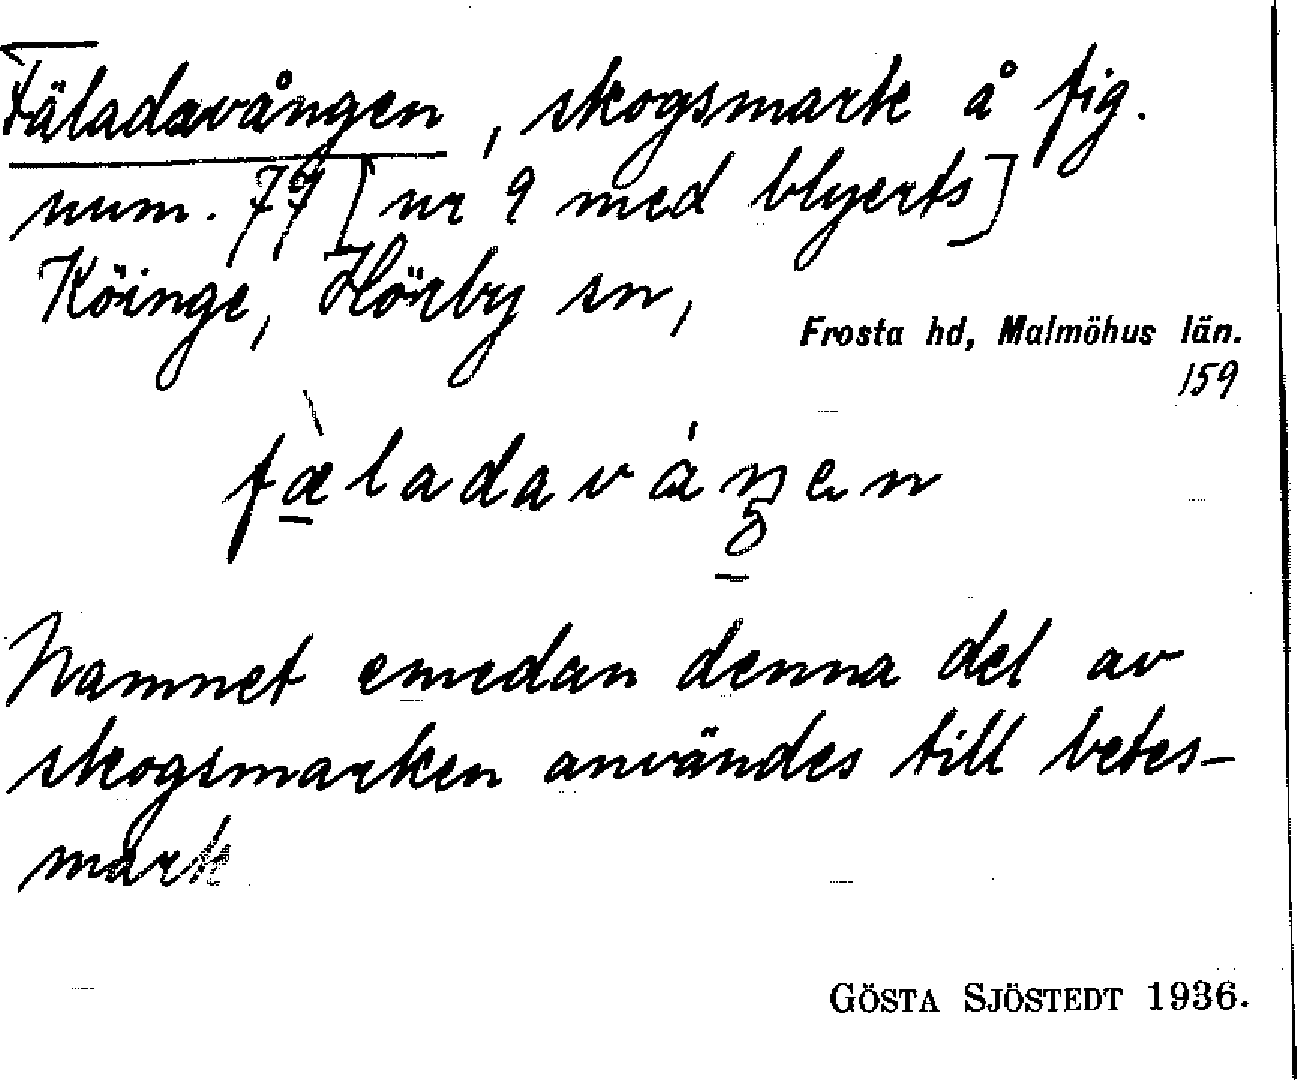 Fäladavången, skogsmark å fig.
num. 79 [nr 9 med blyerts]
Köinge, Hörby sn,
Frosta hd, Malmöhus län.
159
fæladavåŋen
Namnet emedan denna del av
skogsmarken användes till betes-
mark
GÖSTA SJÖSTEDT 1936.